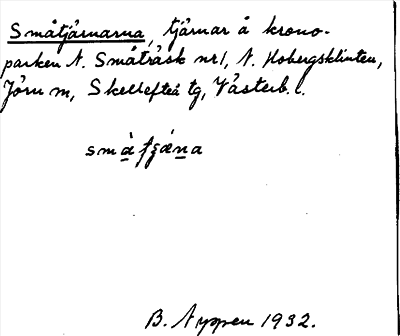 Småtjärnarna, tjärnar å krono-
parken N. Småträsk nr 1, N. Hobergsklinten,
Jörn sn, Skellefteå tg, Västerb. l.
B. Nyppen 1932.